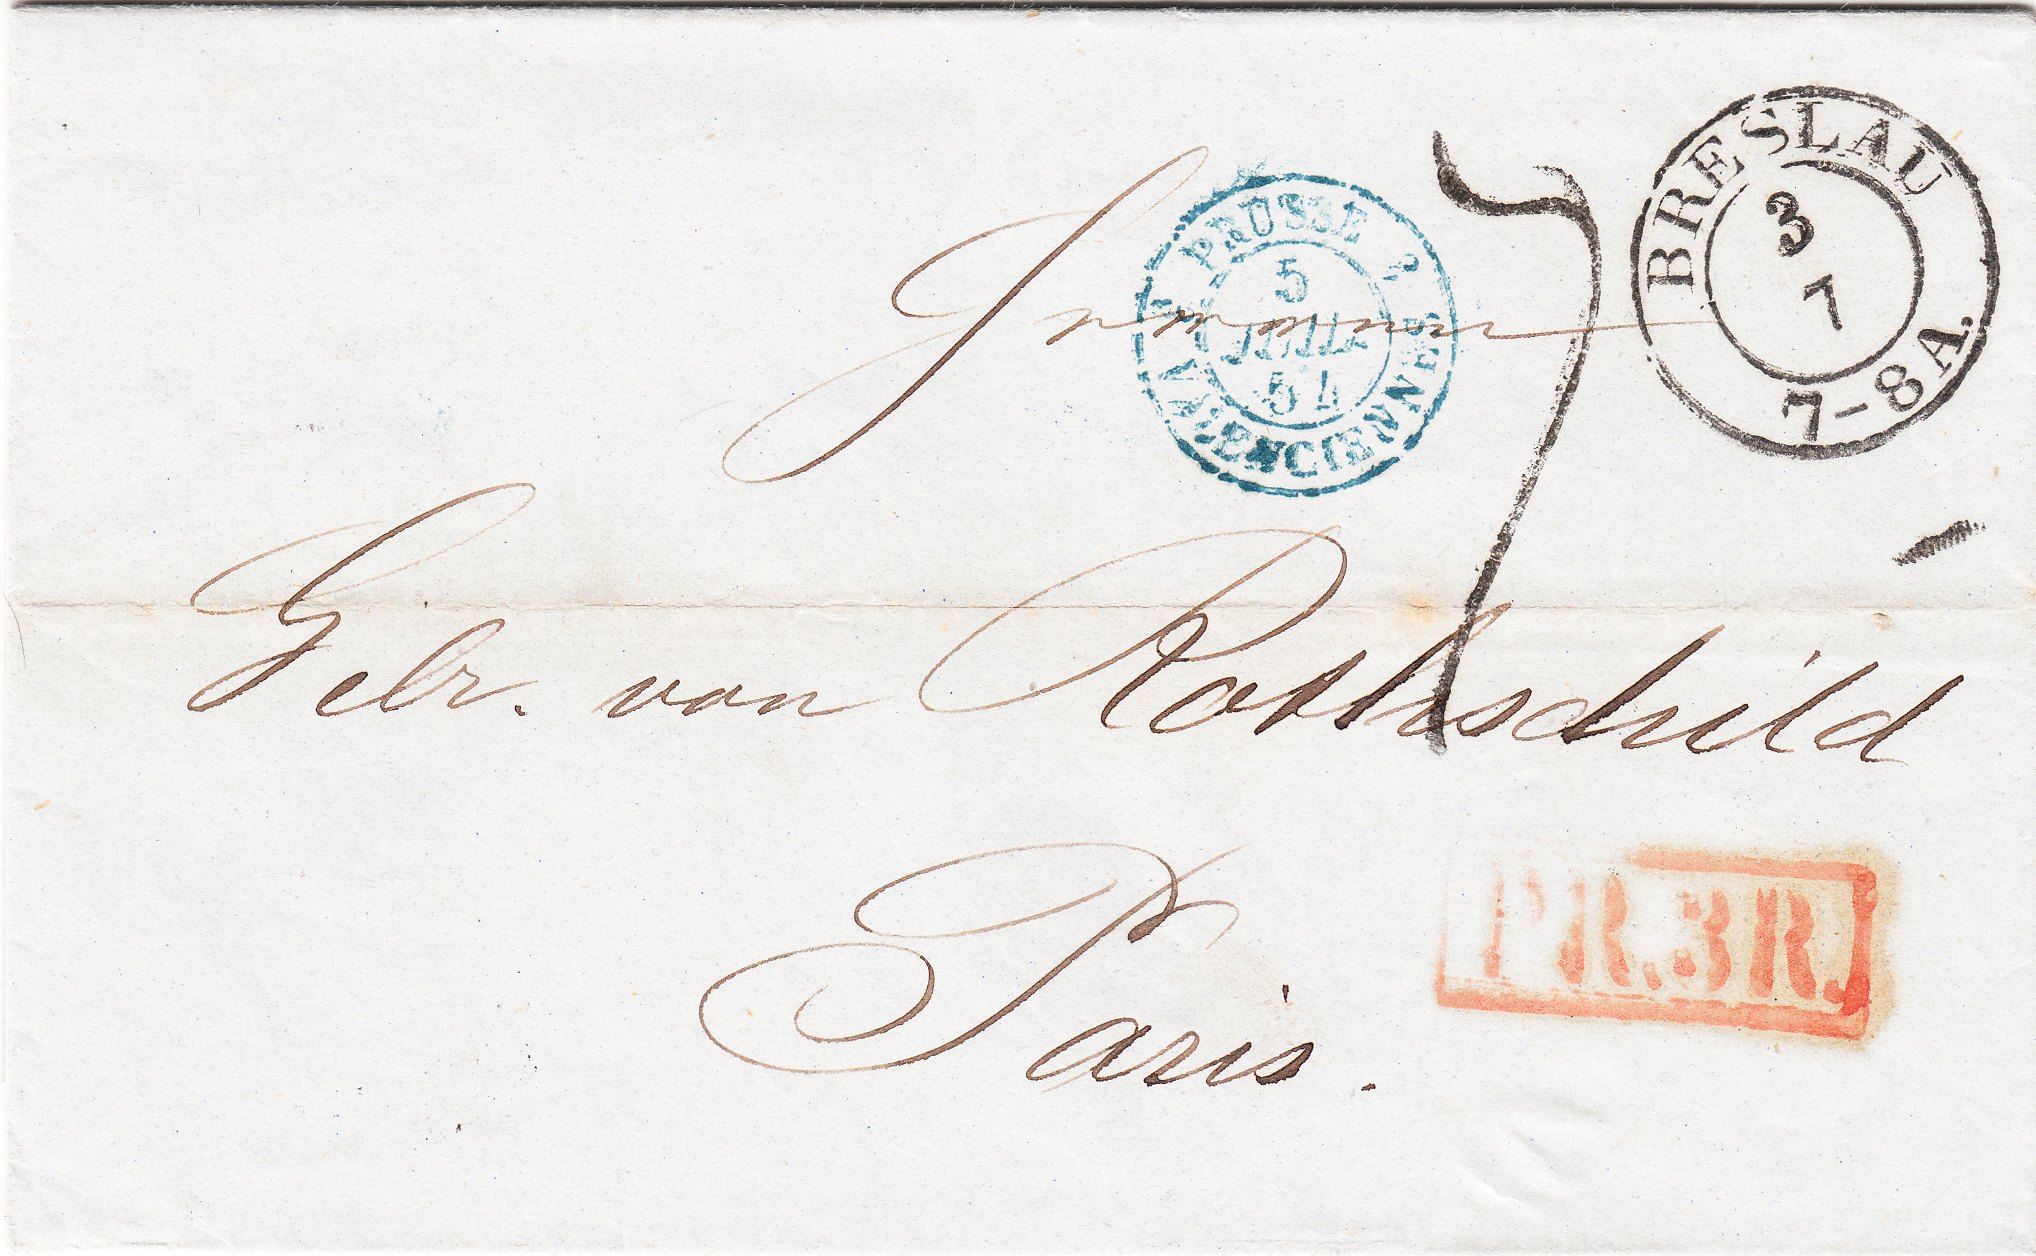 BRESLAU
3
7
7-8A.
PRUSSE 2
5
JUIL
51
VALENCIENNES
7
Gebr. von Rothschild
Paris.
PR.3R.